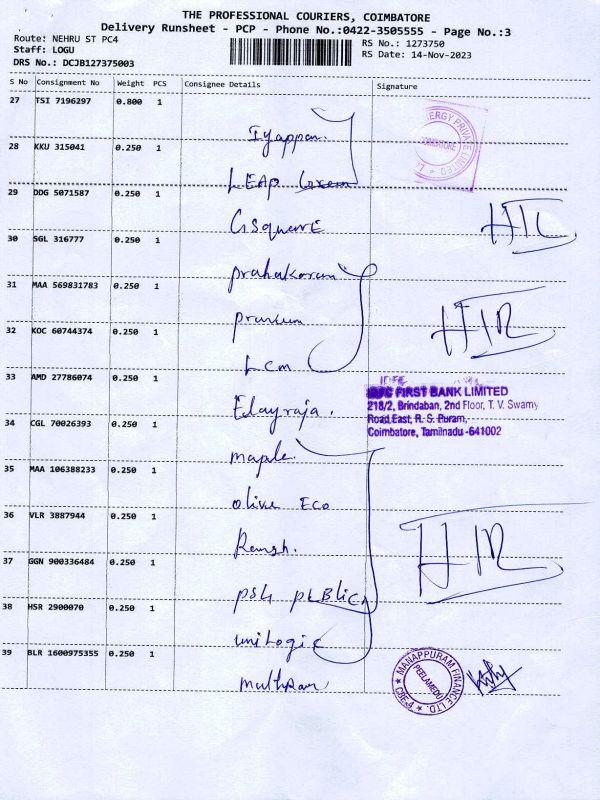 THE PROFESSIONAL COURIERS, COIMBATORE
Delivery Runsheet - PCP - Phone No.:0422-3505555 - Page No.:3
Route: NEHRU ST PC4
RS No.: 1273750
Staff: LOGU
RS Date: 14-Nov-2023
DRS No.: DCJB127375003
S No Consignment No Weight PCS Consignee Details Signature
27 TSI 7196297 0.800 1
Iyappan
ERGY PRIVATE LIMITED
COIMBATORE
28 KKU 315041 0.250 1
LEAP Green
29 DDG 5071587 0.250 1
Gsquare
30 SGL 316777 0.250 1
prahakaran
31 MAA 569831783 0.250 1
32 KOC 60744374 0.250 1
Lcm
33 AMD 27786074 0.250 1
IDFC FIRST BANK LIMITED
218/2, Brindaban, 2nd Floor, T. V. Swamy
Road East, R. S. Puram,
Coimbatore, Tamilnadu -641002
Elayraja.
34 CGL 70026393 0.250 1
maple
35 MAA 106388233 0.250 1
olive Eco
36 VLR 3887944 0.250 1
37 GGN 900336484 0.250 1
PSG PUBlic
38 HSR 2900070 0.250 1
uniLogic
39 BLR 1600975355 0.250 1
★ MANAPPURAM FINANCE LTD. ★ CBE-4
PEELAMEDU